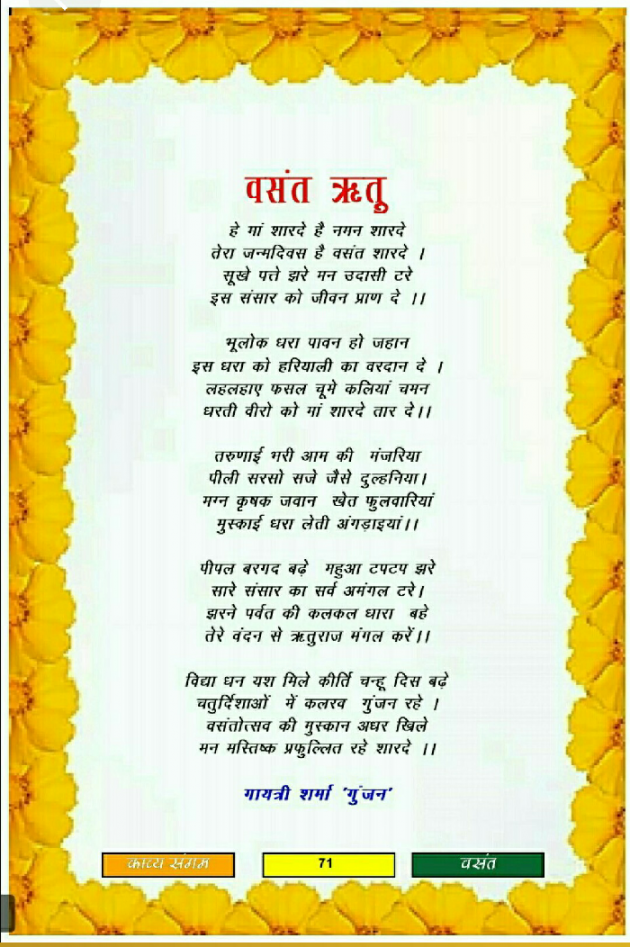 वसंत ऋतु
हे मां शारदे है नमन शारदे
तेरा जन्मदिवस है वसंत शारदे ।
सूखे पत्ते झरे मन उदासी टरे
इस संसार को जीवन प्राण दे ।।
भूलोक धरा पावन हो जहान
इस धरा को हरियाली का वरदान दे ।
लहलहाए फसल चूमे कलियां चमन
धरती वीरो को मां शारदे तार दे।।
तरुणाई भरी आम की मंजरिया
पीली सरसो सजे जैसे दुल्हनिया।
मग्न कृषक जवान खेत फुलवारियां
मुस्काई धरा लेती अंगड़ाइयां।।
पीपल बरगद बढ़े महुआ टपटप झरे
सारे संसार का सर्व अमंगल टरे।
झरने पर्वत की कलकल धारा बहे
तेरे वंदन से ऋतुराज मंगल करें।।
विद्या धन यश मिले कीर्ति चन्हू दिस बढ़े
चतुर्दिशाओं में कलरव गुंजन रहे ।
वसंतोत्सव की मुस्कान अधर खिले
मन मस्तिष्क प्रफुल्लित रहे शारदे ।।
गायत्री शर्मा ‘गुंजन’
काव्य संगम
71
वसंत